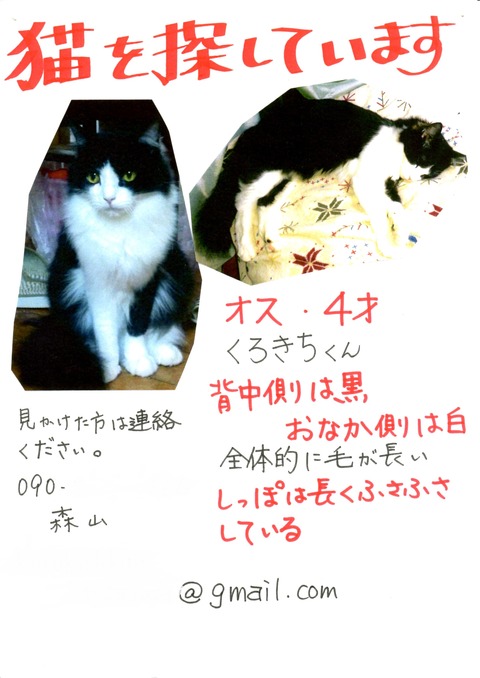 猫を探しています
オス・4才
くろきちくん
背中側は黒,
おなか側は白
全体的に毛が長い
しっぽは長くふさふさ
している
見かけた方は連絡
ください。
090-
森山
@gmail.com